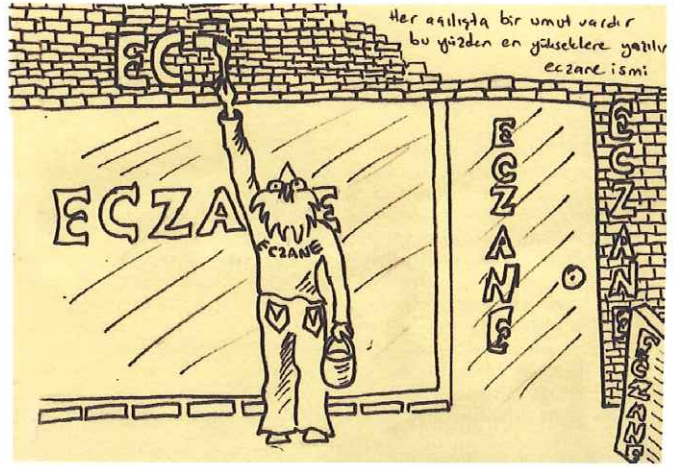 Her açılışta bir umut vardır
bu yüzden en yükseklere yazılır
eczane ismi
ECZ
ECZANE
ECZANE
ECZANE
ECZANE
ECZANE